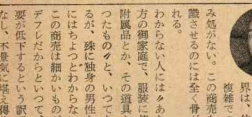 界は
複雑で
み処がない。この商売
識させるのには全〻骨
れる。
わからない人には〃あ
方の御家庭で、服装に使
附属品とか、その道具
つたもの〃と、いつて
るが、殊に独身の男性
にはちよつとわからな
この商売は細かいもの
デフレだからといつて
要が低下するという訳
なし、不景気に堪え得